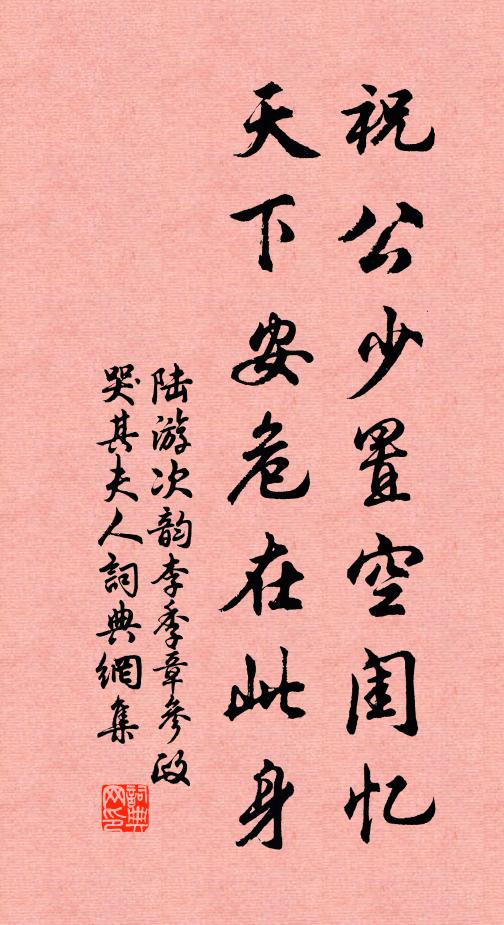 祝公少置空闺忆
天下安危在此身
陆游次韵李季章参政
哭其夫人詞典網集
詞典
网印